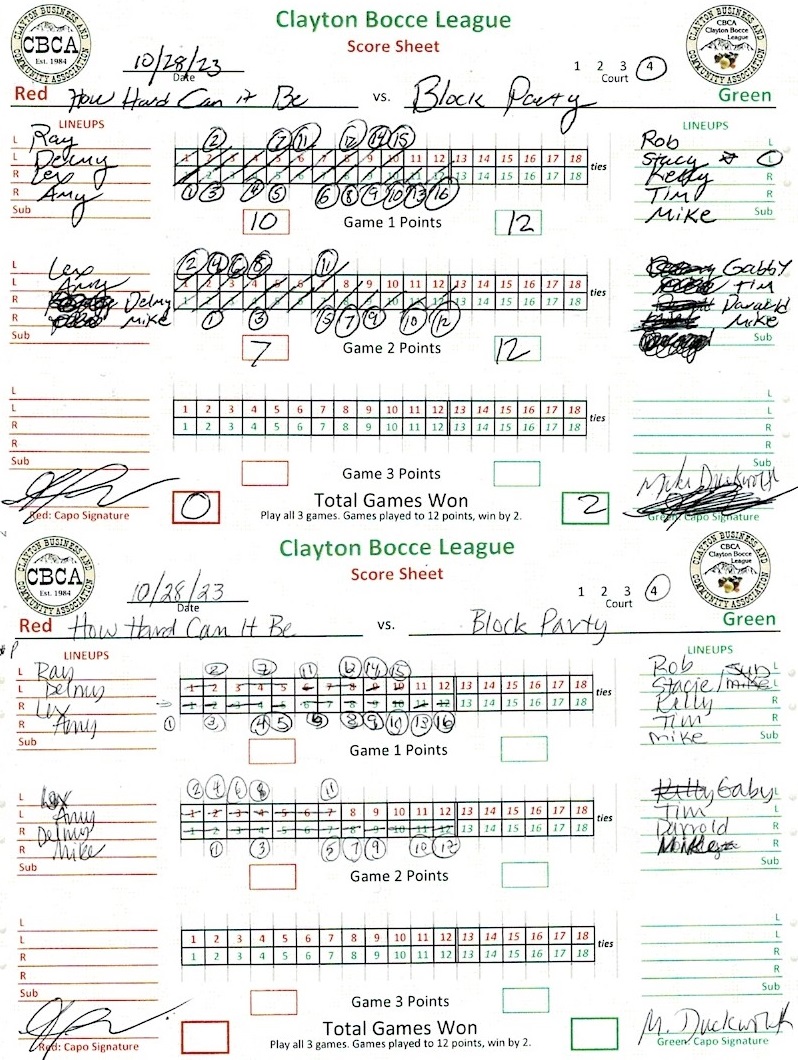 Clayton Bocce League
Score Sheet
CLAYTON BUSINESS AND COMMUNITY ASSOCIATION
CBCA
Est. 1984
CBCA
Clayton Bocce
League
10/28/23
Date
1 2 3 4
Court
Red How Hard Can it Be vs. Block Party Green
LINEUPS LINEUPS
L Ray Rob L
L Delmy Stacy 1
R Lex Kelly R
R Amy Tim R
Sub Mike
2 7 11 12 14 15
1 2 3 4 5 6 7 8 9 10 11 12 13 14 15 16 17 18
1 2 3 4 5 6 7 8 9 10 11 12 13 14 15 16 17 18
ties
1 3 4 5 6 8 9 10 13 16
10 Game 1 Points 12
L Lex Gabby
L Amy Tim
R Delmy
R Mike Mike
Sub Sub
2 4 6 8 11
1 2 3 4 5 6 7 8 9 10 11 12 13 14 15 16 17 18
1 2 3 4 5 6 7 8 9 10 11 12 13 14 15 16 17 18
ties
1 3 5 7 9 10 12
7 Game 2 Points 12
L L
L L
R R
R R
Sub Sub
1 2 3 4 5 6 7 8 9 10 11 12 13 14 15 16 17 18
1 2 3 4 5 6 7 8 9 10 11 12 13 14 15 16 17 18
ties
Game 3 Points
0 Total Games Won 2
Play all 3 games. Games played to 12 points, win by 2.
Red: Capo Signature
Mike Duckworth
Green: Capo Signature
Clayton Bocce League
Score Sheet
CLAYTON BUSINESS AND COMMUNITY ASSOCIATION
CBCA
Est. 1984
CBCA
Clayton Bocce
League
10/28/23
Date
1 2 3 4
Court
Red How Hard Can It Be vs. Block Party Green
LINEUPS LINEUPS
L Ray Rob Sub L
L Delmy Stacie/mike L
R Lex Kelly R
R Amy Tim R
Sub Mike Sub
2 7 11 12 14 15
1 2 3 4 5 6 7 8 9 10 11 12 13 14 15 16 17 18
1 2 3 4 5 6 7 8 9 10 11 12 13 14 15 16 17 18
ties
1 3 4 5 6 8 9 10 13 16
Game 1 Points
L Lex Gaby L
L Amy Tim L
R Delmy Darrold R
R Mike Mike R
Sub Sub
2 4 6 8 11
1 2 3 4 5 6 7 8 9 10 11 12 13 14 15 16 17 18
1 2 3 4 5 6 7 8 9 10 11 12 13 14 15 16 17 18
ties
1 3 5 7 9 10 12
Game 2 Points
L L
L L
R R
R R
Sub Sub
1 2 3 4 5 6 7 8 9 10 11 12 13 14 15 16 17 18
1 2 3 4 5 6 7 8 9 10 11 12 13 14 15 16 17 18
ties
Game 3 Points
Total Games Won
Play all 3 games. Games played to 12 points, win by 2.
Red: Capo Signature
M. Duckworth
Green: Capo Signature